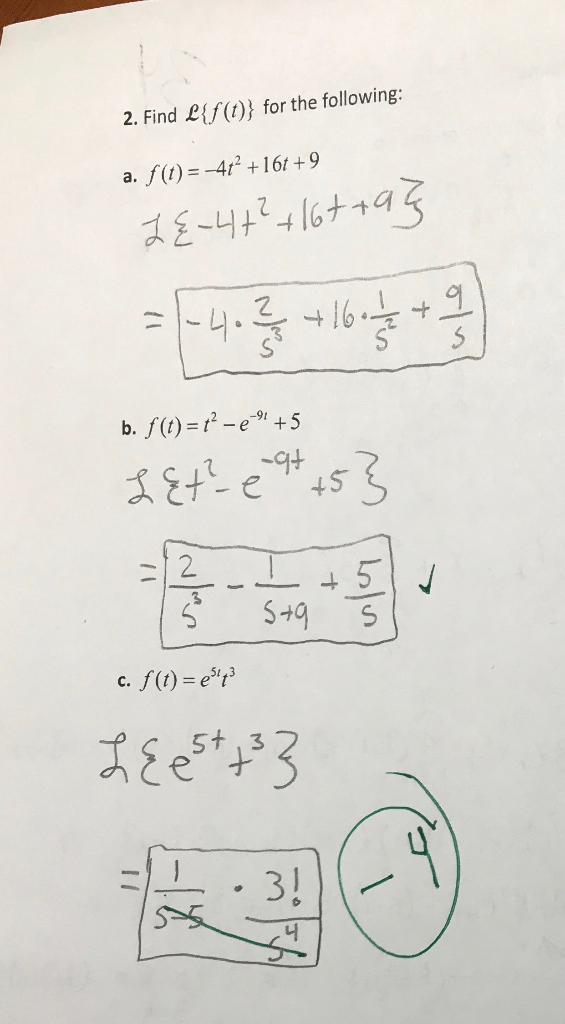 2. Find ℒ{f(t)} for the following:
a. f(t) = -4t² + 16t + 9
ℒ{-4t² + 16t + 9}
= -4 · 2/s³ + 16 · 1/s² + 9/s
b. f(t) = t² - e⁻⁹ᵗ + 5
ℒ{t² - e⁻⁹ᵗ + 5}
= 2/s³ - 1/(s+9) + 5/s ✓
c. f(t) = e⁵ᵗt³
ℒ{e⁵ᵗt³}
= 1/(s-5) · 3!/s⁴
-4